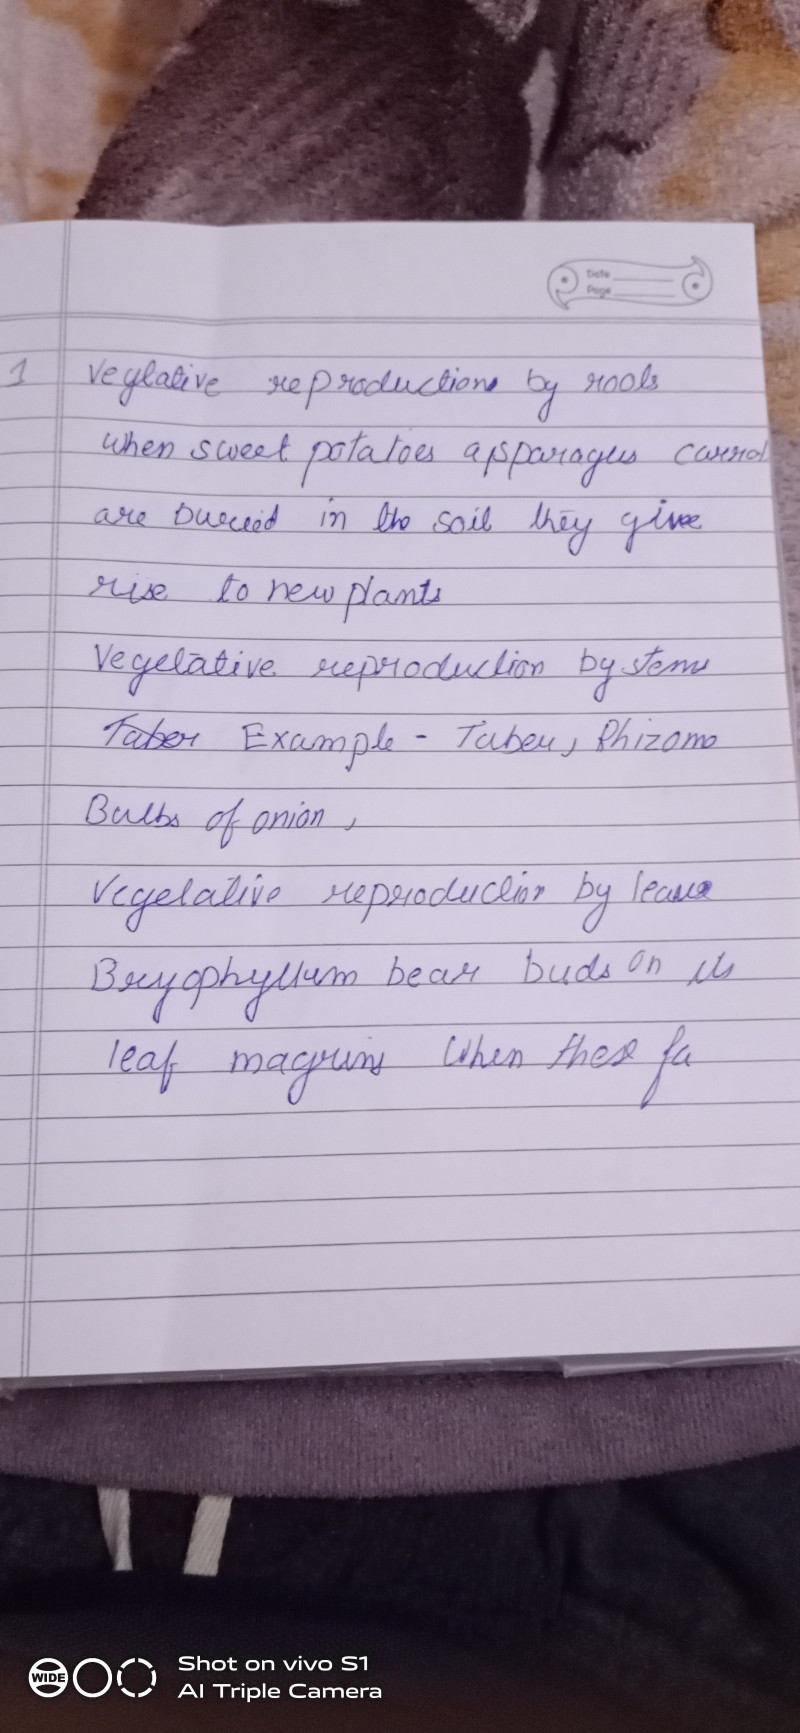 Date
Page
1 Veglative reproductions by roots
when sweet potatoes asparagus carrot
are buried in the soil they give
rise to new plants
Vegetative reproduction by stems
Taber Example - Taber, Rhizome
Bulbs of onion,
Vegetative reproduction by leaves
Bryophyllum bear buds on its
leaf magrins When these fa
WIDE
Shot on vivo S1
AI Triple Camera